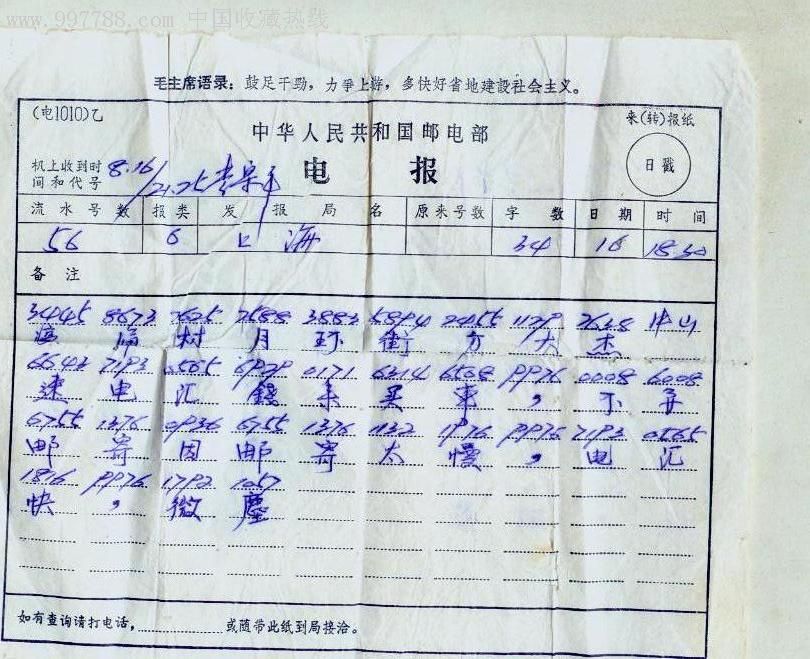 www.997788.com 中国收藏热线
毛主席语录：鼓足干劲，力争上游，多快好省地建設社会主义。
(电1010)乙
中华人民共和国邮电部
来(转)报纸
电 报
日戳
机上收到时间和代号 8.16/21.25
流水号数 报类 发报局名 原来号数 字数 日期 时间
56 6 上海 34 16 18.30
备注
3445 8673 2625 2588 3883 5894 2455 1129 2638 中山
村 月 环 街 方 大 杰
6643 7193 0565 6929 0171 6314 6508 9976 0008 6008
速 电 汇 錢 来 买 車 ， 不
6755 1376 0936 6755 1376 1132 1976 9976 7193 0565
邮 寄 因 邮 寄 太 慢 ， 电 汇
1816 9976 1792 1057
快 ， 微 塵
如有查询请打电话， 或随带此纸到局接洽。